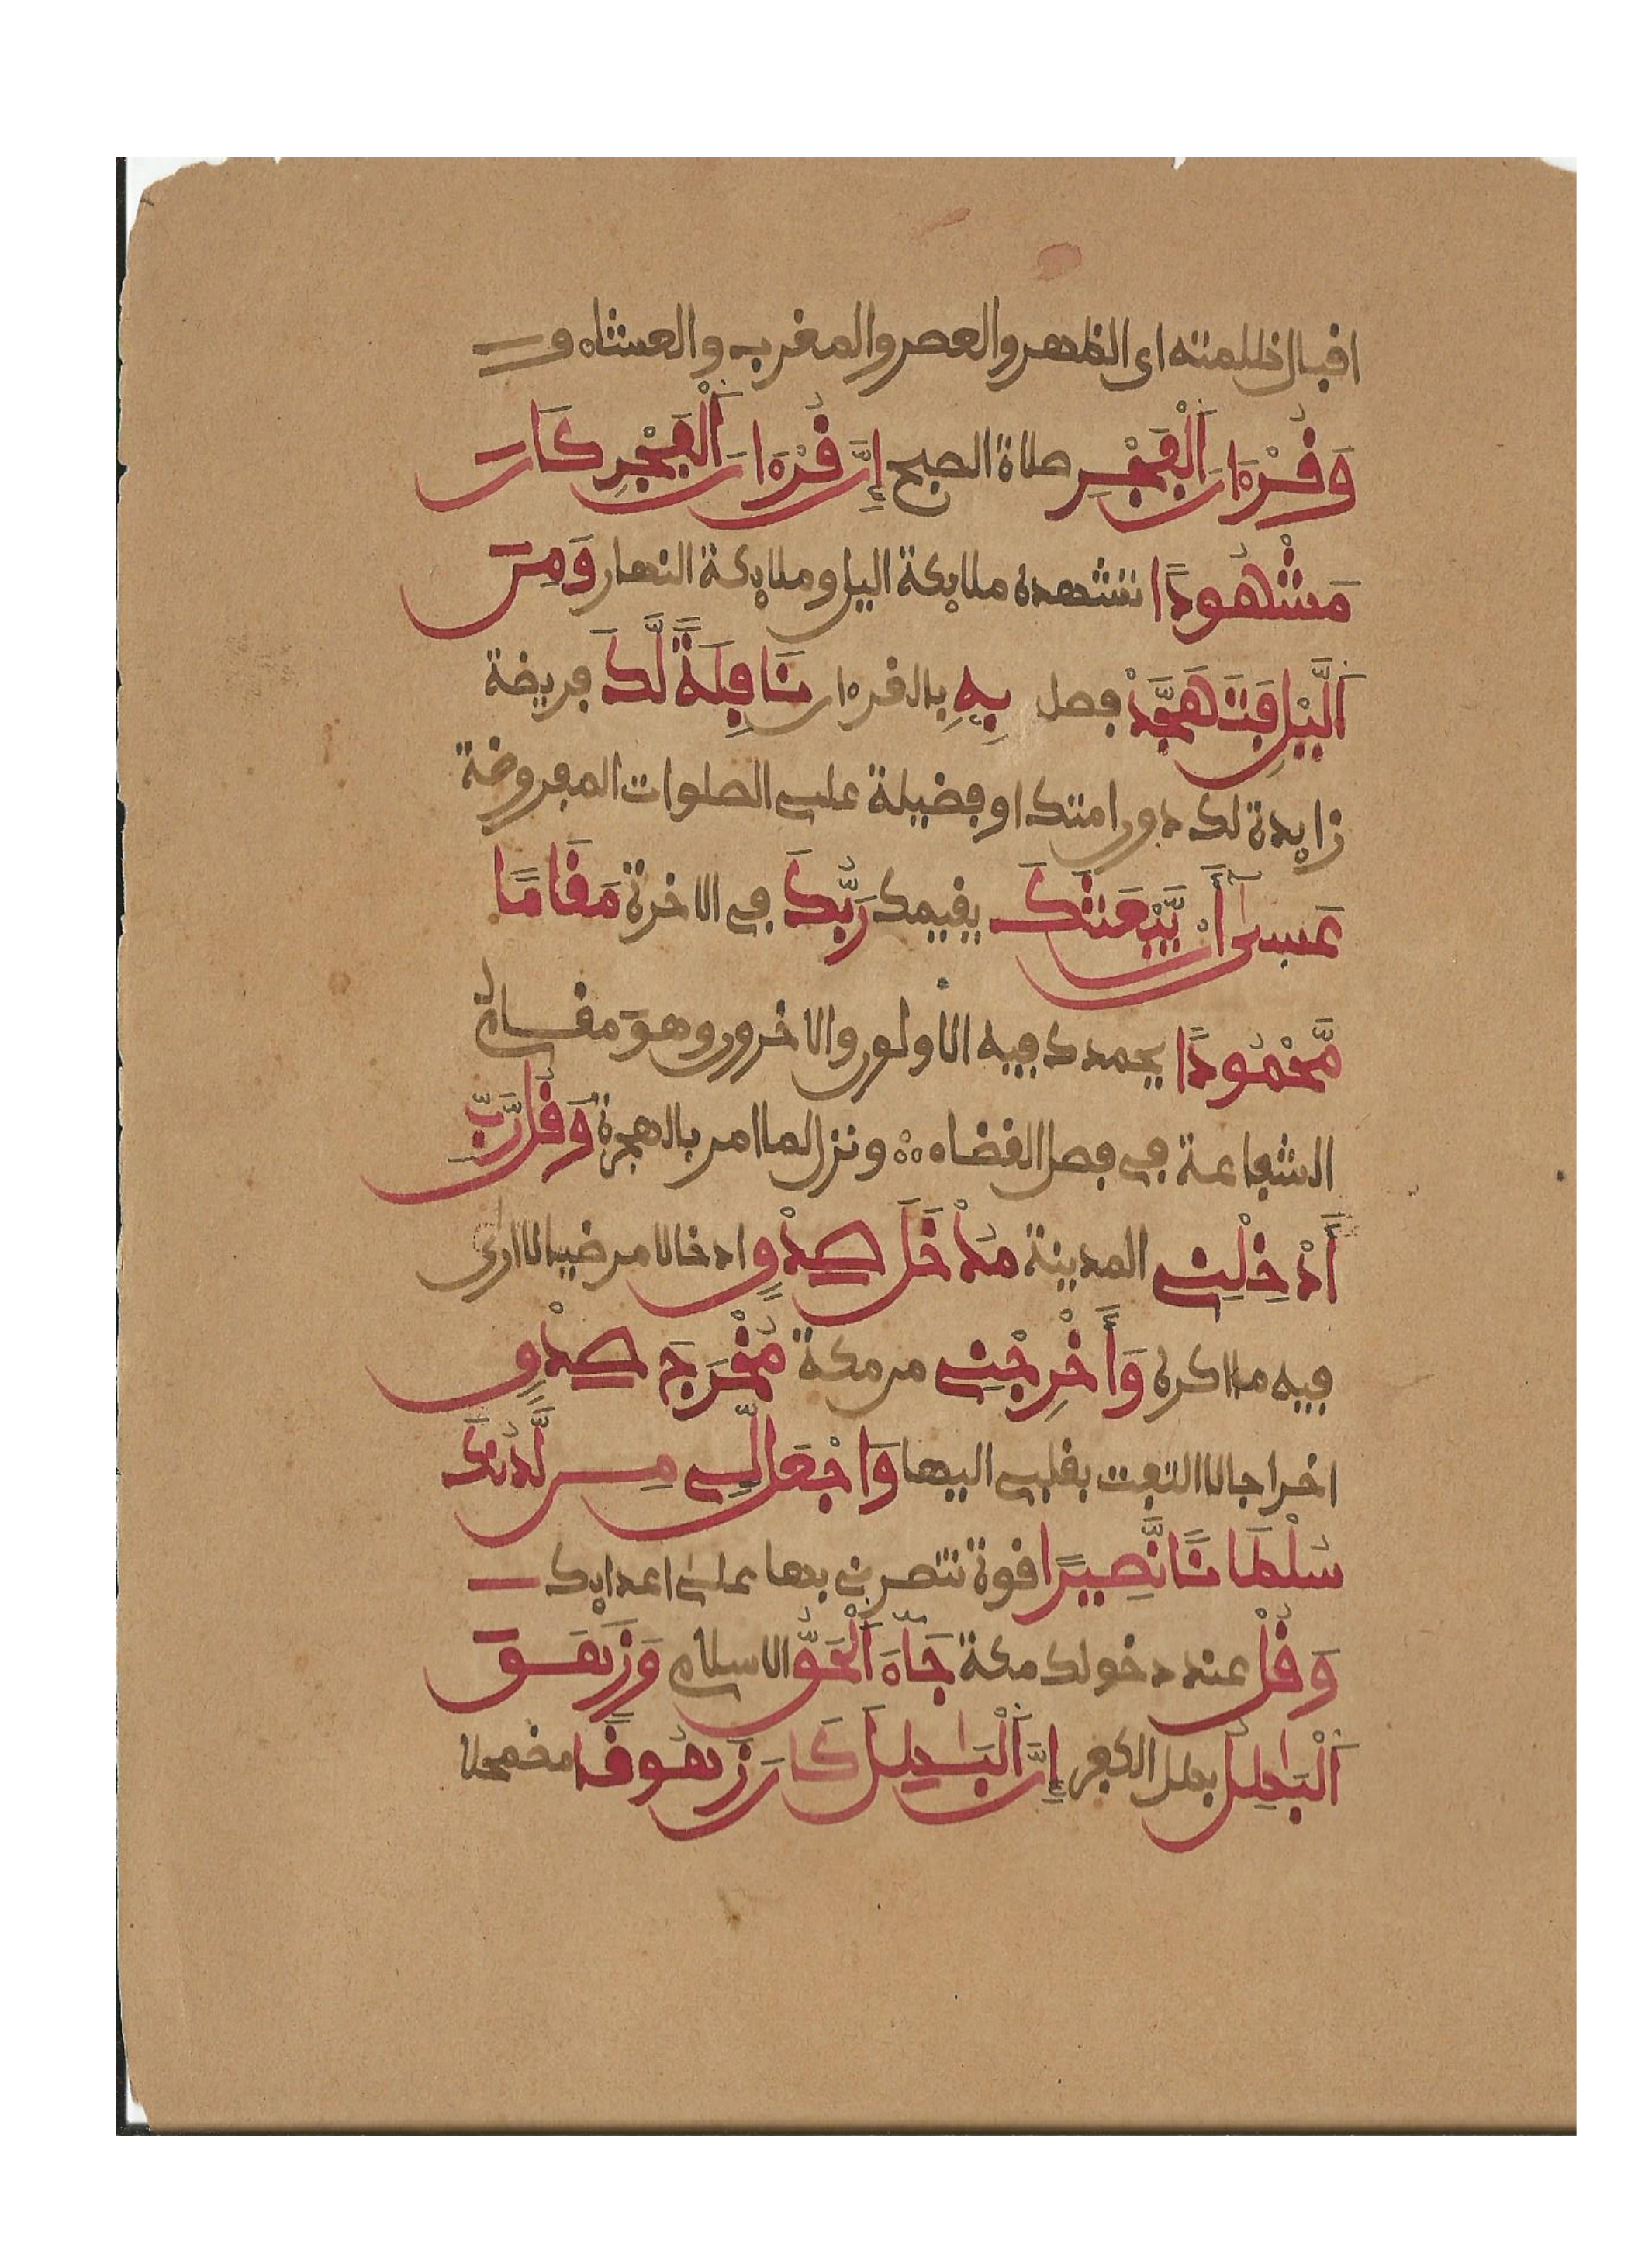 اقبال ظلمته اى الظهر والعصر والمغرب والعشاء و
وَقُرْءَانَ اَلْفَجْرِ صلاة الصبح إِنَّ قُرْءَانَ اَلْفَجْرِ كَانَ
مَشْهُودًا تشهده ملايكة اليل وملايكة النهار وَمِنَ
اَلَّيْلِ فَتَهَجَّدْ فصل بِهِ بالقرءان نَافِلَةً لَّكَ فريضة
زايدة لك دون امتك او فضيلة على الصلوات المفروضة
عَسىٰٓ أَنْ يَّبْعَثَكَ يقيمك رَبُّكَ في الاخرة مَقَامًا
مَّحْمُودًا يحمدك فيه الاولون والاخرون وهو مقام
الشفاعة في فصل القضاء ونزل لما امر بالهجرة وَقُل رَّبِّ
أَدْخِلْنِي المدينة مُدْخَلَ صِدْقٍ ادخالا مرضيا لا ارى
فيه ما اكره وَأَخْرِجْنِي من مكة مُخْرَجَ صِدْقٍ
اخراجا لا التفت بقلبي اليها وَاجْعَل لِّي مِن لَّدُنكَ
سُلْطَانًا نَّصِيرًا قوة تنصرني بها على اعدايك
وَقُلْ عند دخولك مكة جَآءَ اَلْحَقُّ الاسلام وَزَهَقَ
اَلْبَٰطِلُ بطل الكفر إِنَّ اَلْبَٰطِلَ كَانَ زَهُوقًا مضمحلا